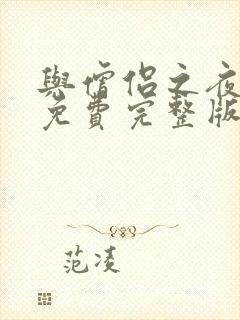 與僧侶之夜
免費完整版
范凌